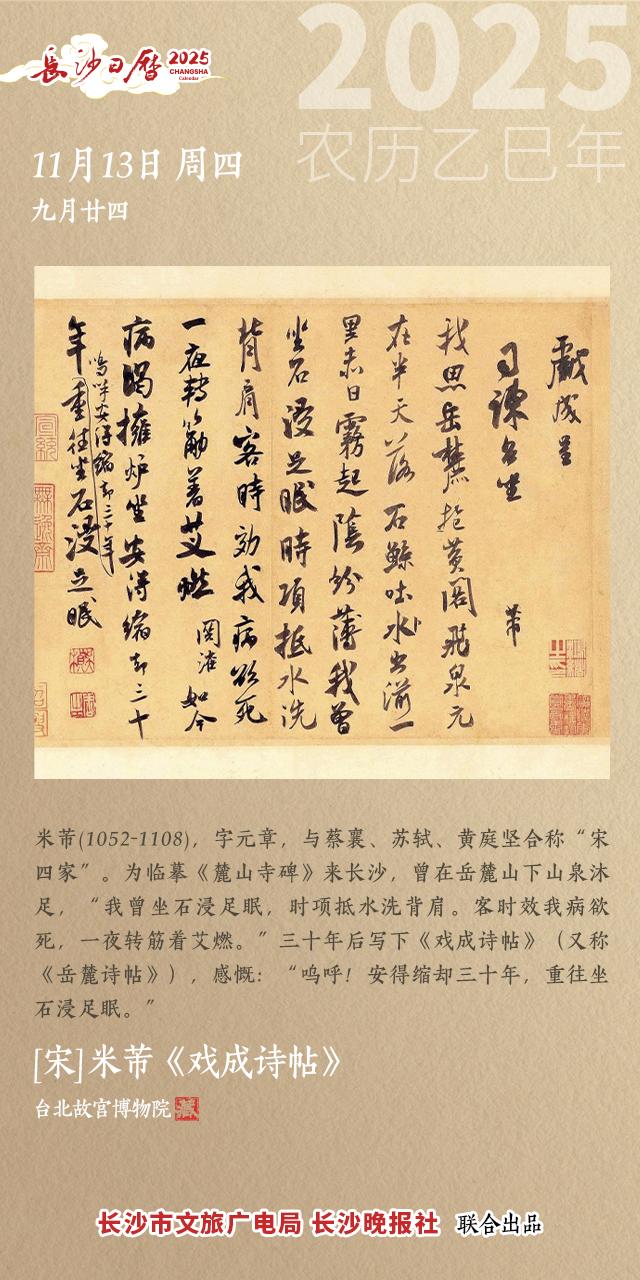 長沙日曆 2025
CHANGSHA
Calendar
2025
农历乙巳年
11月13日 周四
九月廿四
戲成呈
司諫台坐 芾
我思岳麓抱黄閣飛泉元
在半天落石鯨吐水出湔一
里赤日霧起陰紛薄我曾
坐石浸足眠時項抵水洗
背肩客時効我病欲死
一夜轉筋著艾燃 関淮 如今
病渴擁炉坐安得縮却三十
嗚呼安得縮却三十年
年重往坐石浸足眠
米芾(1052-1108)，字元章，与蔡襄、苏轼、黄庭坚合称“宋
四家”。为临摹《麓山寺碑》来长沙，曾在岳麓山下山泉沐
足，“我曾坐石浸足眠，时项抵水洗背肩。客时效我病欲
死，一夜转筋着艾燃。”三十年后写下《戏成诗帖》（又称
《岳麓诗帖》），感慨：“呜呼！安得缩却三十年，重往坐
石浸足眠。”
[宋]米芾《戏成诗帖》
台北故宫博物院 藏
长沙市文旅广电局 长沙晚报社 联合出品